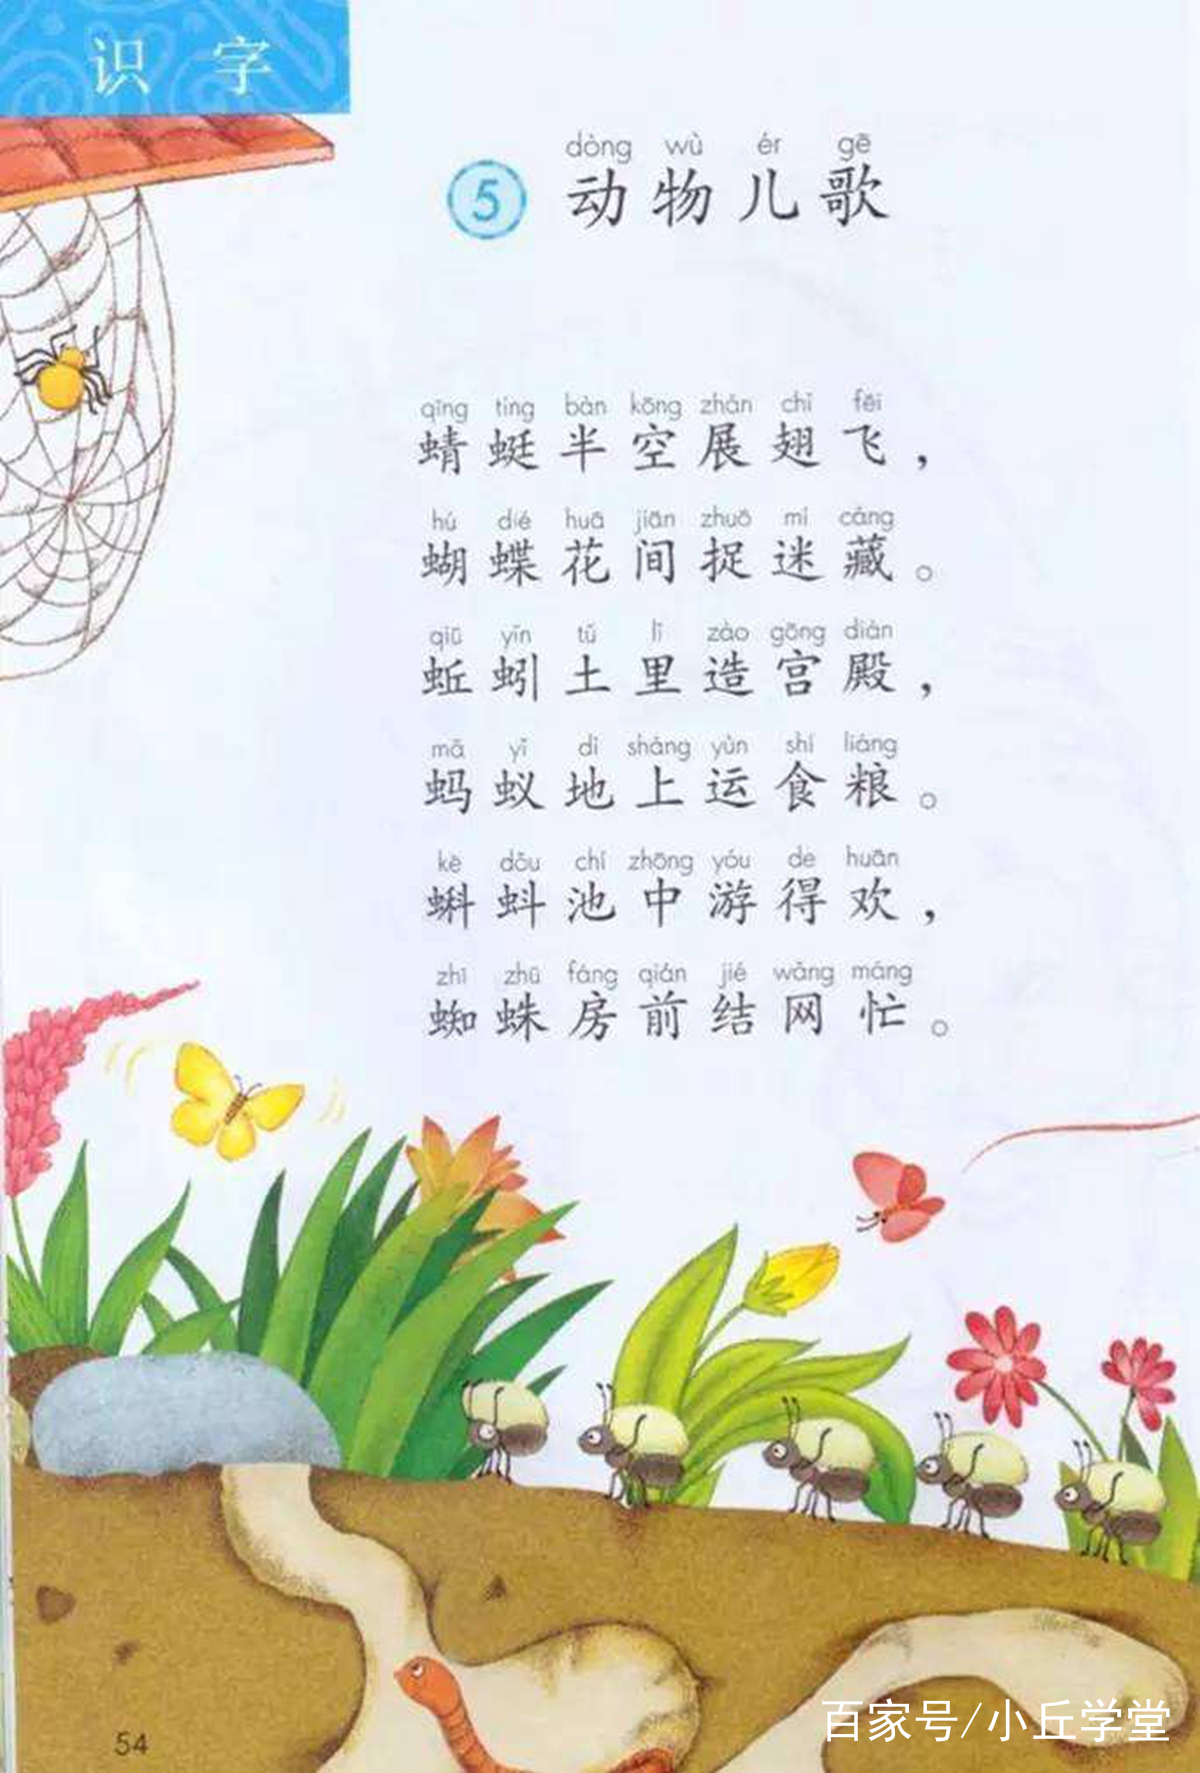 识 字
dòng wù ér gē
5 动物儿歌
qīng tíng bàn kōng zhǎn chì fēi
蜻蜓半空展翅飞，
hú dié huā jiān zhuō mí cáng
蝴蝶花间捉迷藏。
qiū yǐn tǔ lǐ zào gōng diàn
蚯蚓土里造宫殿，
mǎ yǐ dì shàng yùn shí liáng
蚂蚁地上运食粮。
kē dǒu chí zhōng yóu de huān
蝌蚪池中游得欢，
zhī zhū fáng qián jié wǎng máng
蜘蛛房前结网忙。
54
百家号/小丘学堂